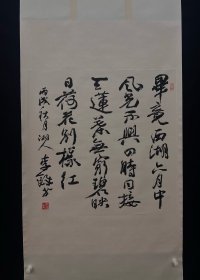 畢竟西湖六月中
風光不與四時同接
天蓮葉無窮碧映
日荷花別樣紅
丙戌秋月湖人李